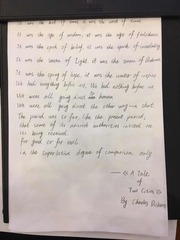 It was the best of times, it was the worst of times
It was the age of wisdom, it was the age of foolishness
It was the epoch of belief, it was the epoch of incredulity
It was the season of Light, it was the season of Darkness
It was the spring of hope, it was the winter of despair
We had everything before us, We had nothing before us
We were all going direct to heaven
We were all going direct the other way — in short
The period was so far, like the present period,
that some of its noisiest authorities insisted on
its being received.
For good or for evil
in the superlative degree of comparison only
——《A Tale
of
Two Cities》
By Charles Dickens